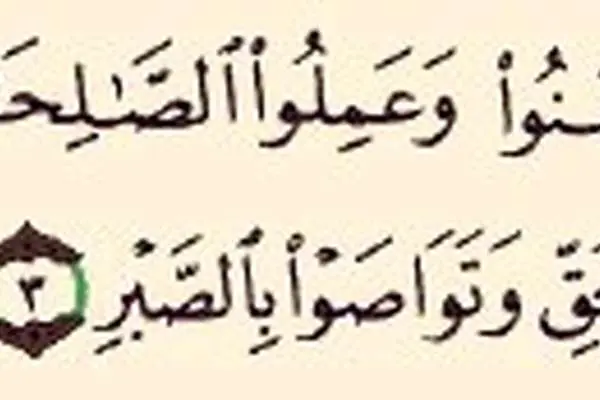 ـنُوا۟ وَعَمِلُوا۟ ٱلصَّـٰلِحَـ
ـقِّ وَتَوَاصَوْا۟ بِٱلصَّبْرِ ٣